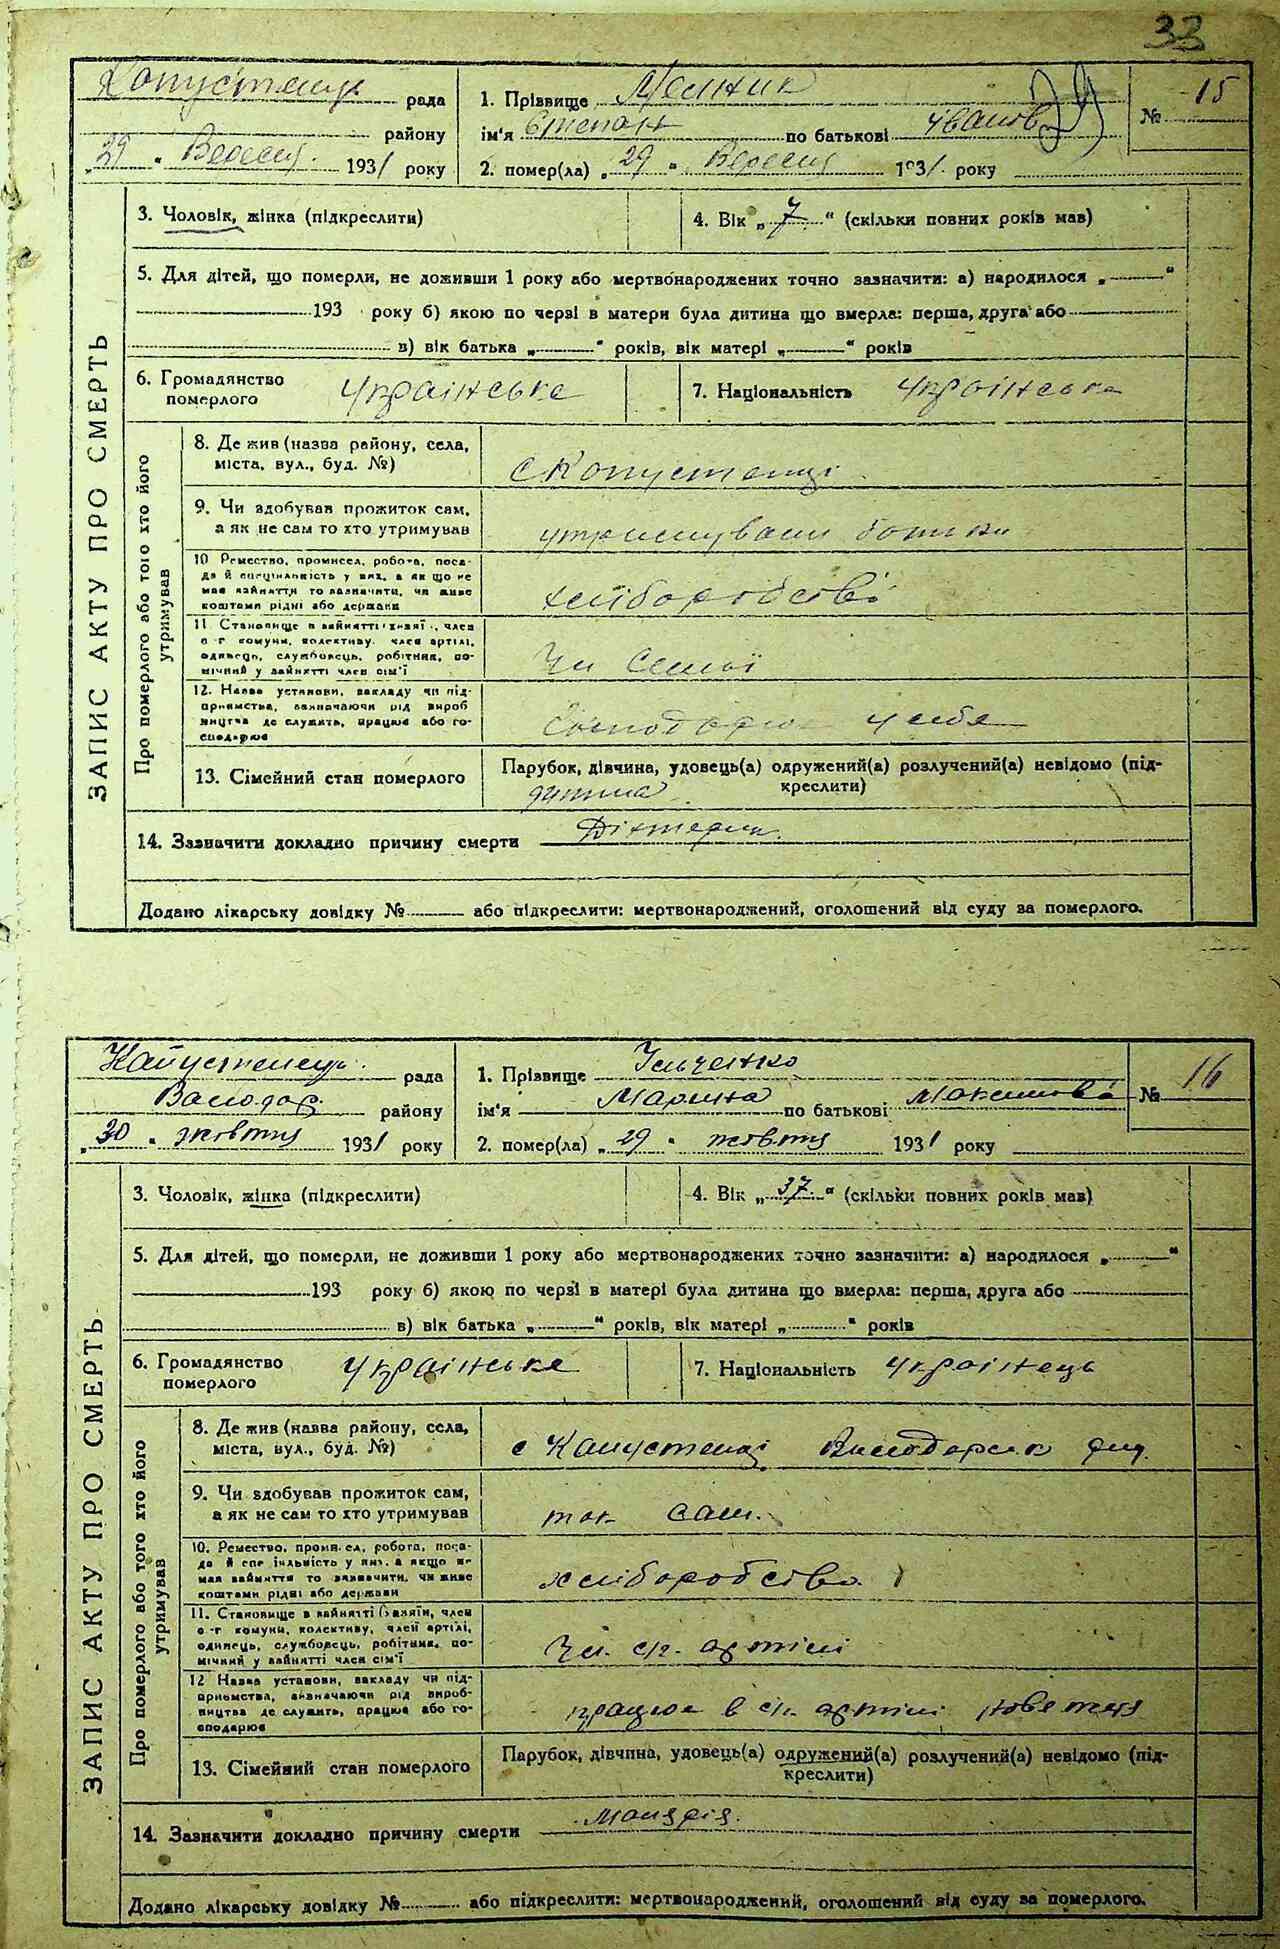 33
Копустенец рада
району
„29 " Вересня 1931 року
1. Прізвище Мельник
ім'я Степан по батькові Іванов
2. помер(ла) „29 " Вересня 1931 року
№ 15
ЗАПИС АКТУ ПРО СМЕРТЬ
3. Чоловік, жінка (підкреслити)
4. Вік „ 7 " (скільки повних років мав)
5. Для дітей, що померли, не доживши 1 року або мертвонароджених точно зазначити: а) народилося „ "
193 року б) якою по черзі в матери була дитина що вмерла: перша, друга або
в) вік батька „ " років, вік матері „ " років
6. Громадянство померлого українське
7. Національність українська
Про померлого або того хто його утримував
8. Де жив (назва району, села,
міста, вул., буд. №)
с Копустенці
9. Чи здобував прожиток сам,
а як не сам то хто утримував
утримували батьки
10 Ремество, промисел, робота, поса-
да й спеціяльність у них, а як що не
мав зайняття то зазначити, чи живе
коштами рідні або держави
хліборобство
11 Становище в зайнятті (хазяї, член
с-г комуни, колективу, член артілі,
одинець, службовець, робітник, по-
мічний у зайнятті член сім'ї
Чл Семьї
12. Назва установи, закладу чи під-
приємства, зазначаючи рід вироб
ництва де служить, працює або го-
сподарює
у себе
13. Сімейний стан померлого
Парубок, дівчина, удовець(а) одружений(а) розлучений(а) невідомо (під-
креслити)
дитина
14. Зазначити докладно причину смерти Діхтерит.
Додано лікарську довідку № або підкреслити: мертвонароджений, оголошений від суду за померлого.
Капустенець рада
Володар району
„30 " жовтня 1931 року
1. Прізвище Ільченко
ім'я Марина по батькові Максимова
2. помер(ла) „29 " жовтня 1931 року
№ 16
ЗАПИС АКТУ ПРО СМЕРТЬ
3. Чоловік, жінка (підкреслити)
4. Вік „ 37 " (скільки повних років мав)
5. Для дітей, що померли, не доживши 1 року або мертвонароджених точно зазначити: а) народилося „ "
193 року б) якою по черзі в матери була дитина що вмерла: перша, друга або
в) вік батька „ " років, вік матері „ " років
6. Громадянство померлого українське
7. Національність українець
Про померлого або того хто його утримував
8. Де жив (назва району, села,
міста, вул., буд. №)
с Капустенці Володарськ
9. Чи здобував прожиток сам,
а як не сам то хто утримував
так сам.
10. Ремество, промисел, робота, поса-
да й спеціяльність у них, а якщо не
мав зайняття то зазначити, чи живе
коштами рідні або держави
хліборобство
11. Становище в зайнятті (хазяїн, член
с-г комуни, колективу, член артілі,
одинець, службовець, робітник, по-
мічний у зайнятті член сім'ї
Чл. с/г. артілі
12 Назва установи, закладу чи під-
приємства, зазначаючи рід вироб-
ництва де служить, працює або го-
сподарює
працює в с/г. артілі
13. Сімейний стан померлого
Парубок, дівчина, удовець(а) одружений(а) розлучений(а) невідомо (під-
креслити)
14. Зазначити докладно причину смерти малярія.
Додано лікарську довідку № або підкреслити: мертвонароджений, оголошений від суду за померлого.